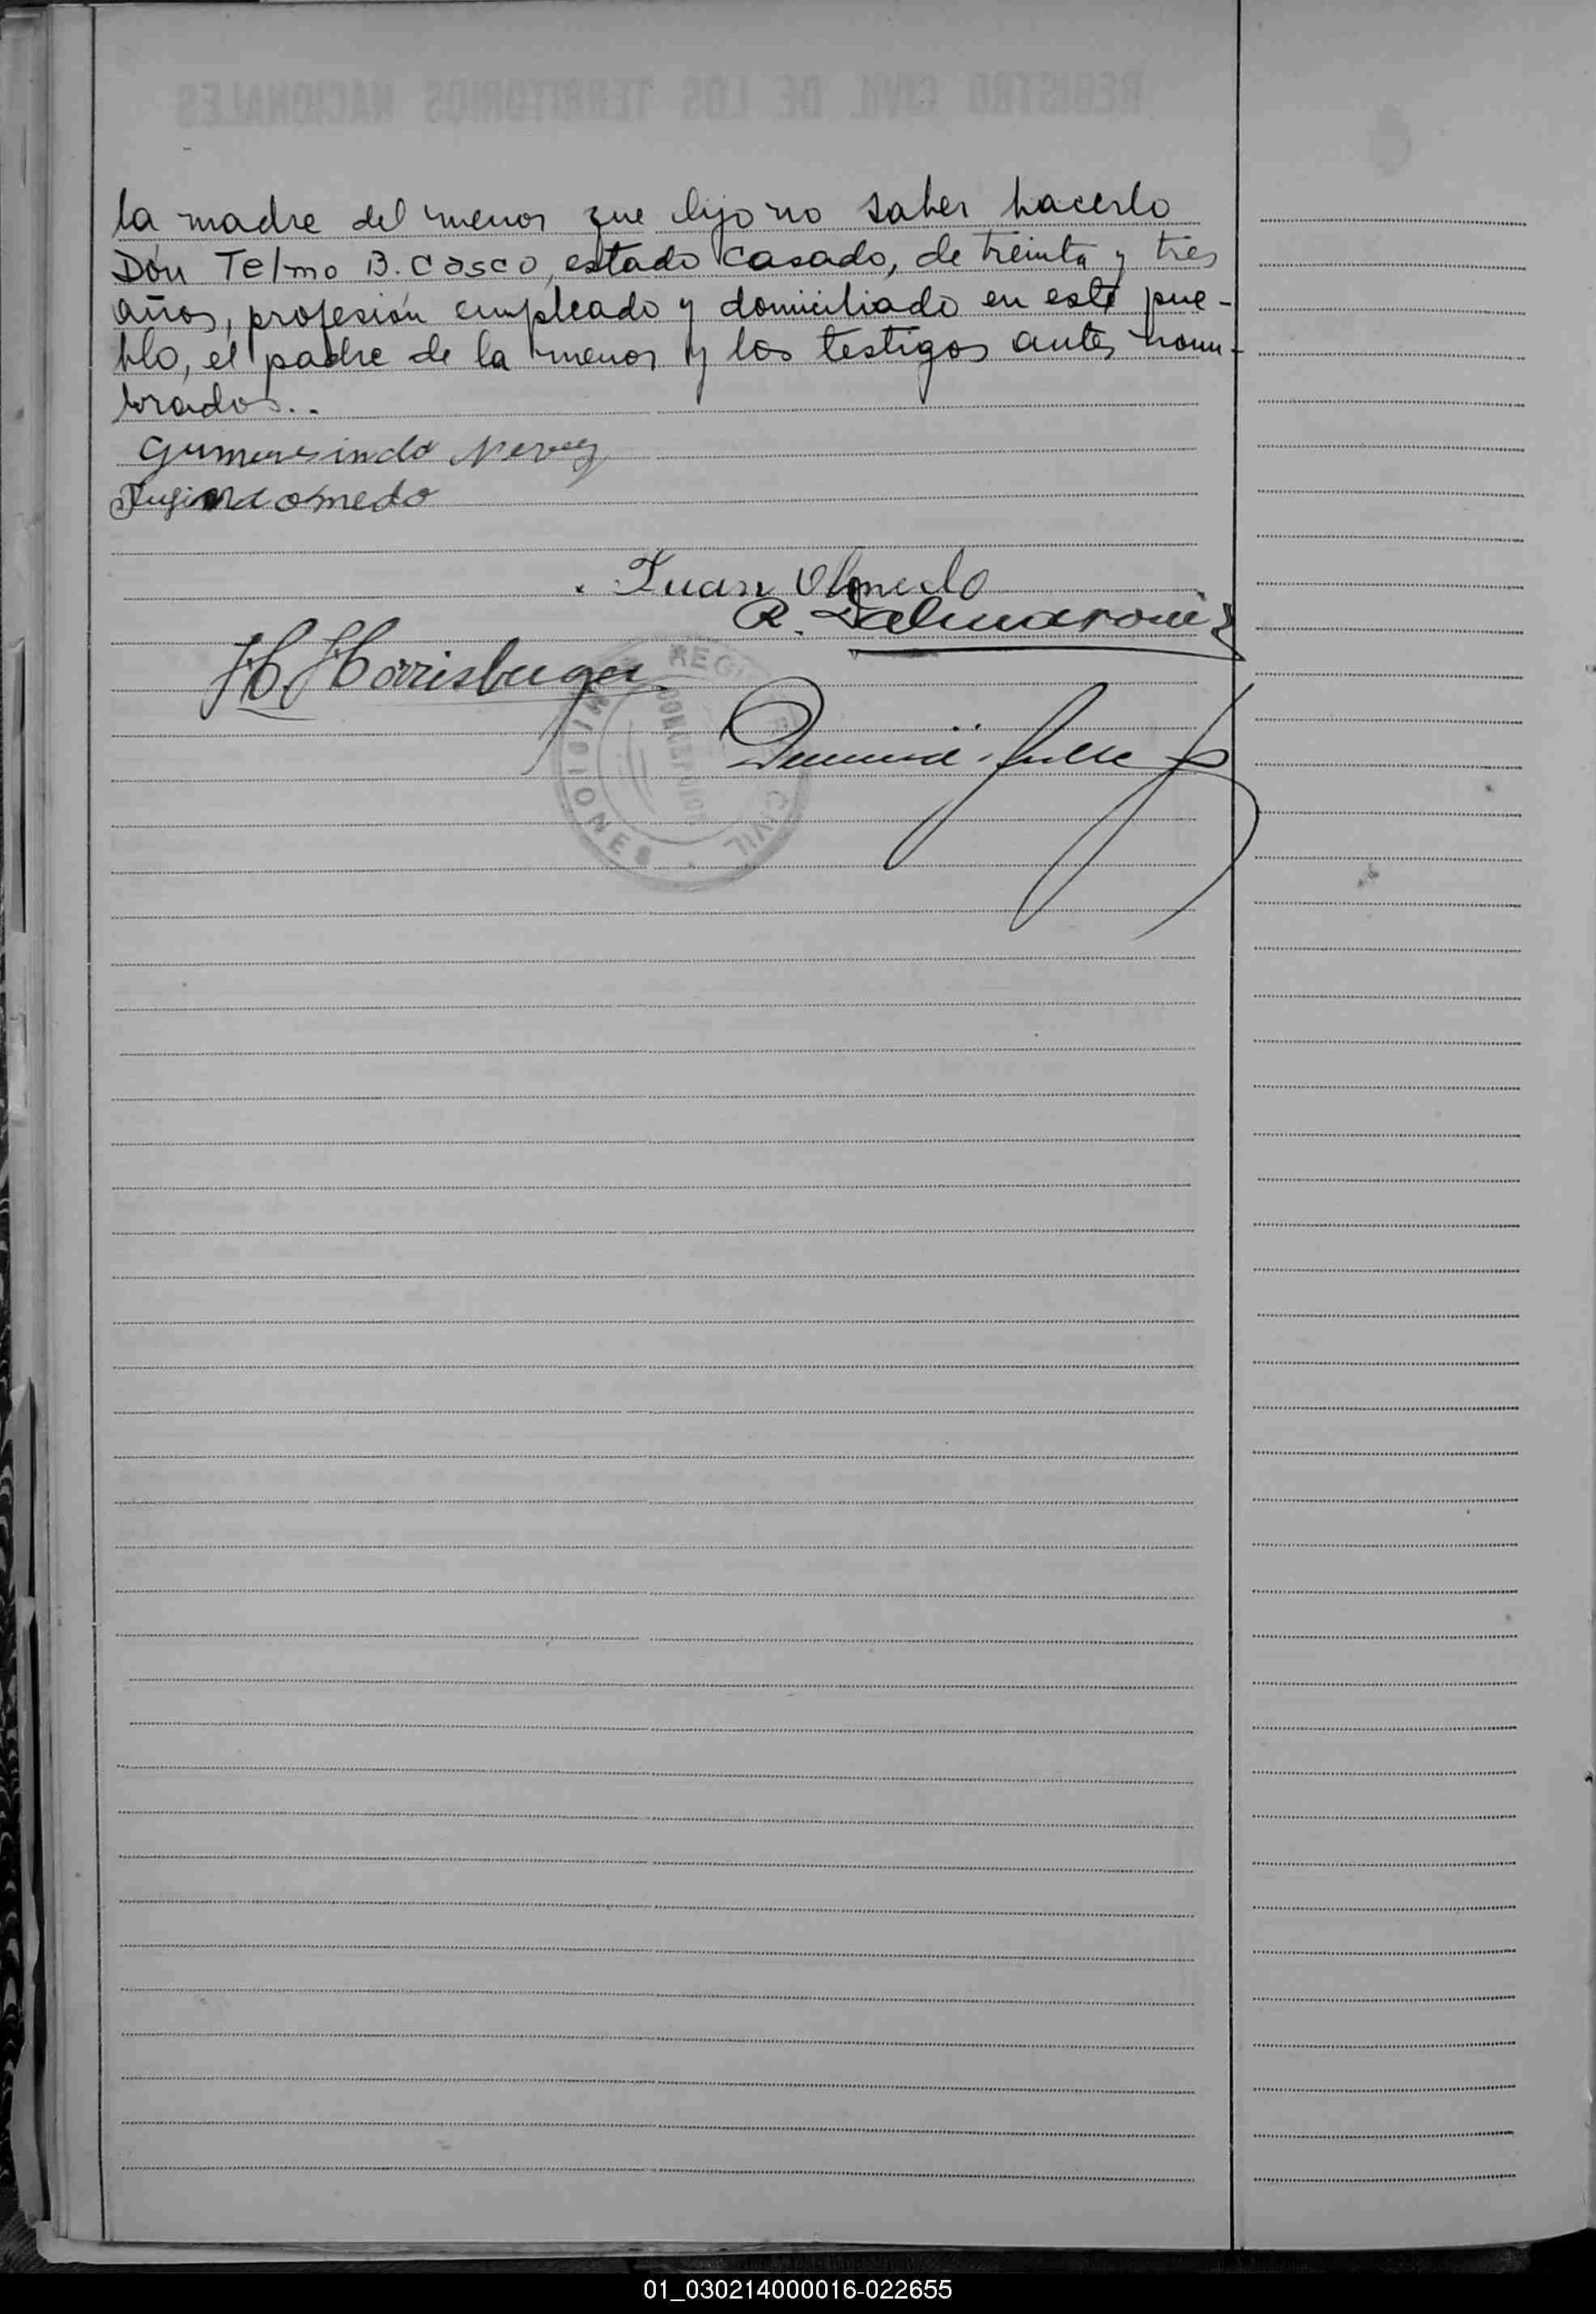 REGISTRO CIVIL DE LOS TERRITORIOS NACIONALES
la madre del menor que dijo no saber hacerlo
Don Telmo B. Casco, estado casado, de treinta y tres
años, profesión empleado y domiciliado en este pue-
blo, el padre de la menor y los testigos antes nom-
brados..
Gumersindo
Juan Olmedo
R.
H.
REGI CIVIL
MISIONES
01_030214000016-022655